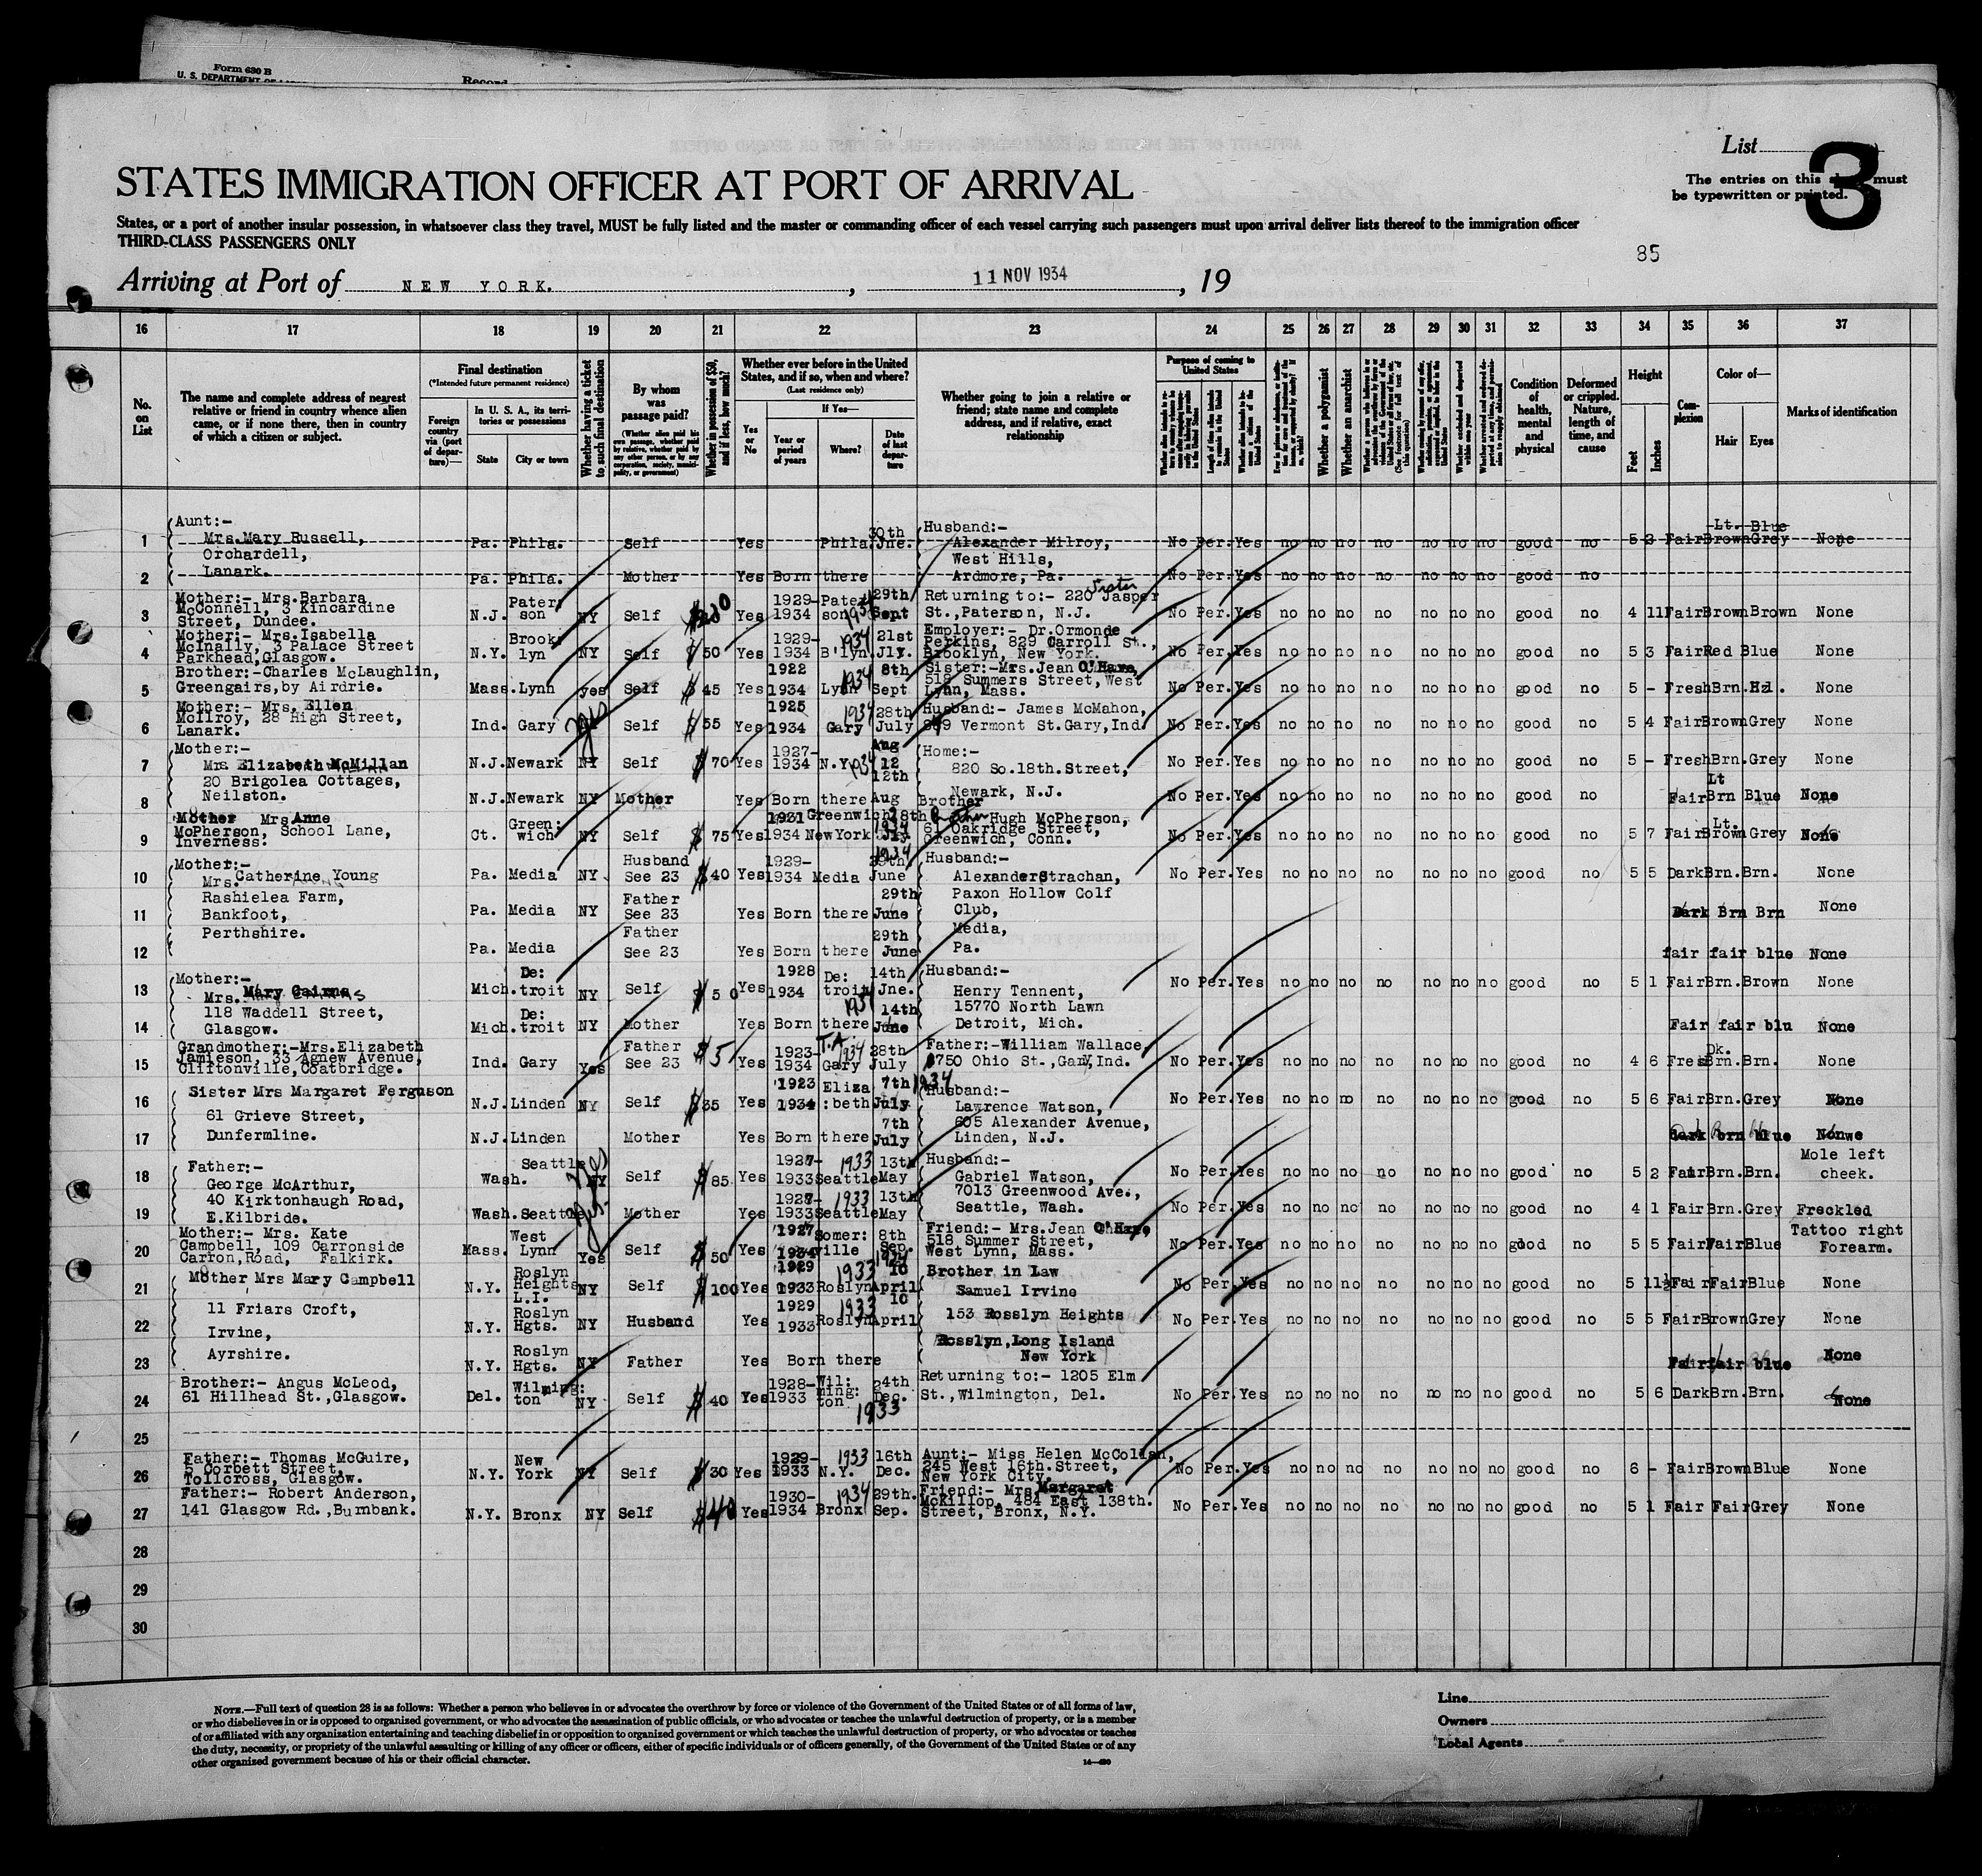 Form 630 B
U. S. DEPARTMENT OF
Record
List
3
The entries on this must
be typewritten or printed.
STATES IMMIGRATION OFFICER AT PORT OF ARRIVAL
States, or a port of another insular possession, in whatsoever class they travel, MUST be fully listed and the master or commanding officer of each vessel carrying such passengers must upon arrival deliver lists thereof to the immigration officer
THIRD-CLASS PASSENGERS ONLY
85
Arriving at Port of NEW YORK. , 11 NOV 1934 , 19
16 17 18 19 20 21 22 23 24 25 26 27 28 29 30 31 32 33 34 35 36 37
No. on List
The name and complete address of nearest relative or friend in country whence alien came, or if none there, then in country of which a citizen or subject.
Final destination
(*Intended future permanent residence)
Foreign country via (port of departure)—
In U. S. A., its territories or possessions
State
City or town
Whether having a ticket to such final destination
By whom was passage paid?
(Whether alien paid his own passage, whether paid by relative, whether paid by any other person, or by any corporation, society, municipality, or government)
Whether in possession of $50, and if less, how much?
Whether ever before in the United States, and if so, when and where?
(Last residence only)
Yes or No
If Yes—
Year or period of years
Where?
Date of last departure
Whether going to join a relative or friend; state name and complete address, and if relative, exact relationship
Purpose of coming to United States
Whether a polygamist
Whether an anarchist
Condition of health, mental and physical
Deformed or crippled. Nature, length of time, and cause
Height
Feet
Inches
Complexion
Color of—
Hair
Eyes
Marks of identification
1 Aunt:- Mrs.Mary Russell, Orchardell, Lanark. Pa. Phila. Self Yes Phila. 30th Jne. Husband:- Alexander Milroy, West Hills, Ardmore, Pa. No Per. Yes no no no no no no no good no 5 2 Fair Lt. Brown Blue Grey None
2 Pa. Phila. Mother Yes Born there No Per. Yes no no no no no no no good no
3 Mother:- Mrs.Barbara McConnell, 3 Kincardine Street, Dundee. N.J. Paterson NY Self Yes 1929-1934 Paterson 1934 29th Sept Returning to:- 220 Jasper St.,Paterson, N.J. Sister No Per. Yes no no no no no no no good no 4 11 Fair Brown Brown None
4 Mother:- Mrs.Isabella McInally, 3 Palace Street Parkhead,Glasgow. N.Y. Brooklyn NY Self $ 50 Yes 1929-1934 B'lyn 1934 21st Jly. Employer:- Dr.Ormonde Perkins, 829 Carroll St., Brooklyn, New York. No Per. Yes no no no no no no no good no 5 3 Fair Red Blue None
5 Brother:-Charles McLaughlin, Greengairs,by Airdrie. Mass. Lynn yes Self $ 45 Yes 1922 1934 Lynn 1934 8th Sept Sister:-Mrs.Jean O'Hare, 518 Summers Street,West Lynn, Mass. No Per. Yes no no no no no no no good no 5 - Fresh Brn. Hzl. None
6 Mother:- Mrs. Ellen McIlroy, 28 High Street, Lanark. Ind. Gary yes Self $ 55 Yes 1925 1934 Gary 1934 28th July Husband:- James McMahon, 869 Vermont St.Gary,Ind. No Per. Yes no no no no no no no good no 5 4 Fair Brown Grey None
7 Mother:- Mrs Elizabeth McMillan 20 Brigolea Cottages, Neilston. N.J. Newark NY Self $ 70 Yes 1927-1934 N.Y. 1934 Aug 12 Home:- 820 So.18th.Street, Newark, N.J. No Per. Yes no no no no no no no good no 5 - Fresh Brn. Grey None
8 N.J. Newark NY Mother Yes Born there 12th Aug No Per. Yes no no no no no no no good no Fair Lt Brn Blue None
9 Mother Mrs Anne McPherson, School Lane, Inverness. Ct. Greenwich NY Self $ 75 Yes 1921 1934 Greenwich New York 28th Jly 1934 Brother Hugh McPherson, 61 Oakridge Street, Greenwich, Conn. No Per. Yes no no no no no no no good no 5 7 Fair Lt. Brown Grey None
10 Mother:- Mrs. Catherine Young Rashielea Farm, Bankfoot, Perthshire. Pa. Media NY Husband See 23 $ 40 Yes 1929-1934 Media 29th June Husband:- Alexander Strachan, Paxon Hollow Golf Club, Media, Pa. No Per. Yes no no no no no no no good no 5 5 Dark Brn. Brn. None
11 Pa. Media NY Father See 23 Yes Born there 29th June Dark Brn Brn None
12 Pa. Media Father See 23 Yes Born there 29th June fair fair blue None
13 Mother:- Mrs. Mary Cairns 118 Waddell Street, Glasgow. Mich. De:troit NY Self $ 50 Yes 1928 1934 De:troit 14th Jne. Husband:- Henry Tennent, 15770 North Lawn Detroit, Mich. No Per. Yes no no no no no no no good no 5 1 Fair Brn. Brown None
14 Mich. De:troit NY Mother Yes Born there 1934 14th June Fair fair blu None
15 Grandmother:-Mrs.Elizabeth Jamieson, 33 Agnew Avenue, Cliftonville,Coatbridge. Ind. Gary Yes Father See 23 $5 Yes 1923-1934 Gary 1934 28th July Father:-William Wallace, 3750 Ohio St.,Gary,Ind. No Per. Yes no no no no no no no good no 4 6 Fresh Dk. Brn. Brn. None
16 Sister Mrs Margaret Ferguson 61 Grieve Street, Dunfermline. N.J. Linden NY Self $ 35 Yes 1923 1934 Eliza:beth 7th July 1934 Husband:- Lawrence Watson, 605 Alexander Avenue, Linden, N.J. No Per. Yes no no no no no no no good no 5 6 Fair Brn. Grey None
17 N.J. Linden Mother Yes Born there 7th July Dark brn blue None
18 Father:- George McArthur, 40 Kirktonhaugh Road, E.Kilbride. Wash. Seattle NY yes Self $ 85 Yes 1927-1933 Seattle 1933 13th May Husband:- Gabriel Watson, 7013 Greenwood Ave., Seattle, Wash. No Per. Yes no no no no no no no good no 5 2 Fair Brn. Brn. Mole left cheek.
19 Wash. Seattle yes Mother Yes 1927-1933 Seattle 1933 13th May No Per. Yes no no no no no no no good no 4 1 Fair Brn. Grey Freckled
20 Mother:- Mrs. Kate Campbell, 109 Carronside Carron,Road, Falkirk. Mass. West Lynn Yes Self $ 50 Yes 1927 1934 Somer:ville 8th Sep. 1934 Friend:- Mrs.Jean O'Hare, 518 Summer Street, West Lynn, Mass. No Per. Yes no no no no no no no good no 5 5 Fair Fair Blue Tattoo right Forearm.
21 Mother Mrs Mary Campbell 11 Friars Croft, Irvine, Ayrshire. N.Y. Roslyn Heights L.I. NY Self $ 100 Yes 1929 1933 Roslyn 1933 10 April Brother in Law Samuel Irvine 153 Rosslyn Heights Rosslyn,Long Island New York No Per. Yes no no no no no no no good no 5 11½ Fair Fair Blue None
22 N.Y. Roslyn Hgts. NY Husband Yes 1929 1933 Roslyn 1933 10 April No Per. Yes no no no no no no no good no 5 5 Fair Brown Grey None
23 N.Y. Roslyn Hgts. NY Father Yes Born there Fair fair blue None
24 Brother:- Angus McLeod, 61 Hillhead St.,Glasgow. Del. Wilming:ton NY Self $ 40 Yes 1928-1933 Wil:ming:ton 24th Dec. 1933 Returning to:- 1205 Elm St.,Wilmington, Del. No Per. Yes no no no no no no no good no 5 6 Dark Brn. Brn. None
25
26 Father:- Thomas McGuire, 5 Corbett Street, Tollcross, Glasgow. N.Y. New York NY Self $ 30 Yes 1929-1933 N.Y. 1933 16th Dec. Aunt:- Miss Helen McCollan, 245 West 16th.Street, New York City. No Per. Yes no no no no no no no good no 6 - Fair Brown Blue None
27 Father:- Robert Anderson, 141 Glasgow Rd.,Burnbank. N.Y. Bronx NY Self $40 Yes 1930-1934 Bronx 1934 29th. Sep. Friend:- Mrs Margaret McKillop, 484 East 138th. Street, Bronx, N.Y. No Per. Yes no no no no no no no good no 5 1 Fair Fair Grey None
28
29
30
NOTE.—Full text of question 28 is as follows: Whether a person who believes in or advocates the overthrow by force or violence of the Government of the United States or of all forms of law,
or who disbelieves in or is opposed to organized government, or who advocates the assassination of public officials, or who advocates or teaches the unlawful destruction of property, or is a member
of or affiliated with any organization entertaining and teaching disbelief in or opposition to organized government or which teaches the unlawful destruction of property, or who advocates or teaches
the duty, necessity, or propriety of the unlawful assaulting or killing of any officer or officers, either of specific individuals or of officers generally, of the Government of the United States or of any
other organized government because of his or their official character.
Line
Owners
Local Agents